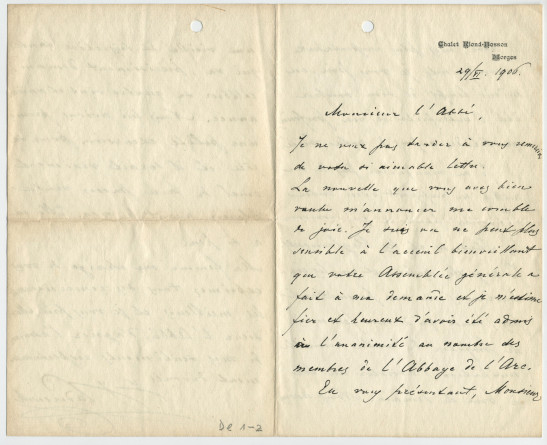 Chalet Riond-Bosson
Morges
29/VI. 1906.
Monsieur l'Abbé,
Je ne veux pas tarder à vous remercier
de votre si aimable lettre.
La nouvelle que vous avez bien
voulu m'annoncer me comble
de joie. Je suis on ne peut plus
sensible à l'accueil bienveillant
que votre Assemblée générale a
fait à ma demande et je m'estime
fier et heureux d'avoir été admis
à l'unanimité au nombre des
membres de l'Abbaye de l'Arc.
En vous présentant, Monsieur
De 1-2